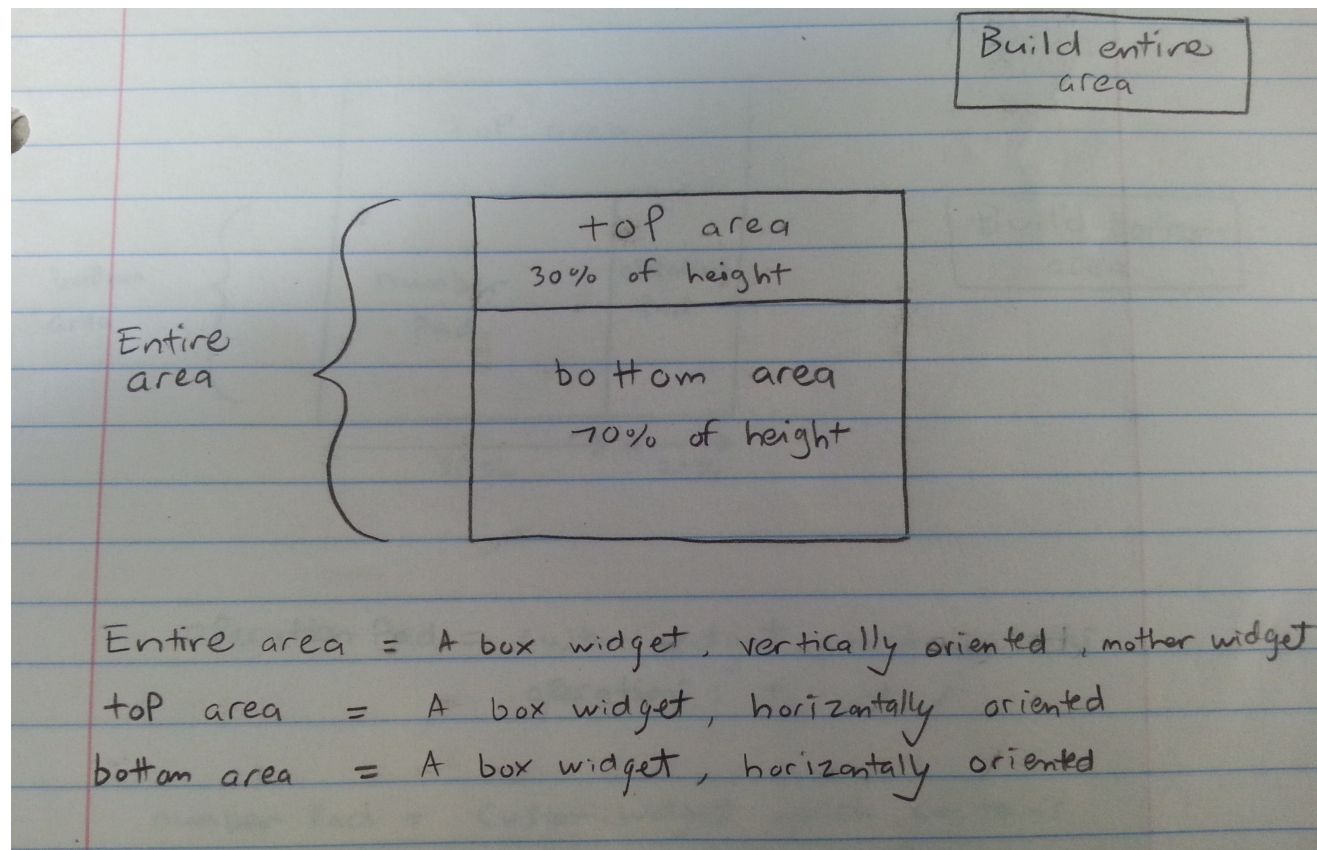 Build entire
area
top area
30% of height
Entire
area
bottom area
70% of height
Entire area = A box widget, vertically oriented, mother widget
top area = A box widget, horizontally oriented
bottom area = A box widget, horizontaly oriented